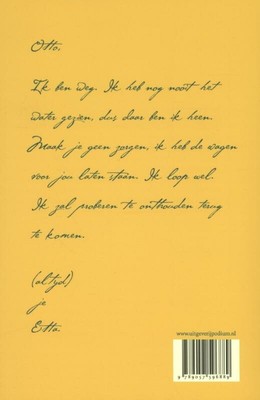 Otto.
Ik ben weg. Ik heb nog nooit het
water gezien, dus daar ben ik heen.
Maak je geen zorgen, ik heb de wagen
voor jou laten staan. Ik loop wel.
Ik zal proberen te onthouden terug
te komen.
(altijd)
je
Etta.
www.uitgeverijpodium.nl